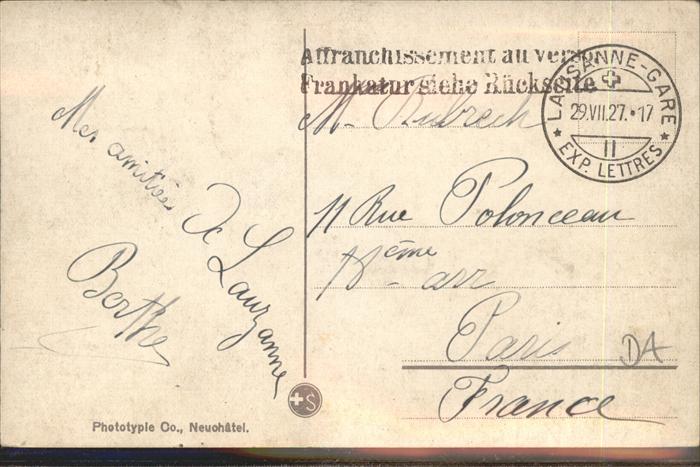 Affranchissement au verso
Frankatur siehe Rückseite
LAUSANNE-GARE
29.VII.27.•17
II
★ EXP. LETTRES ★
Mes amitiés
De Lauzanne
Berthe
M.
11 Rue Polonceau
ème
arr
Paris
France
DA
+S
Phototypie Co., Neuchâtel.